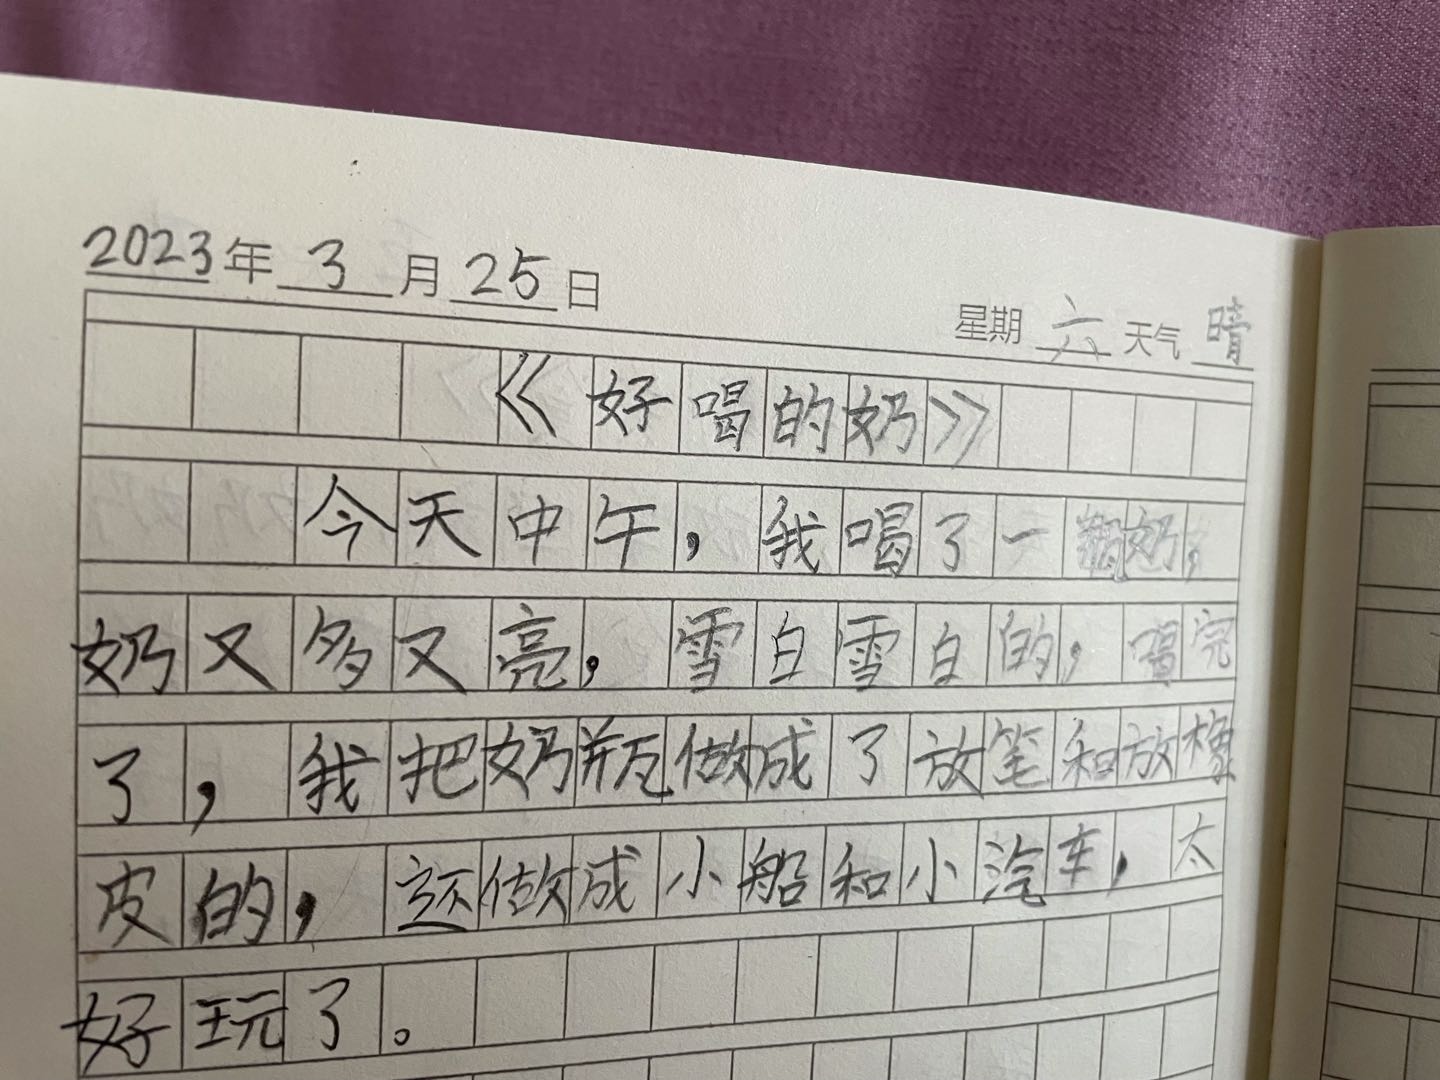 2023年 3 月 25 日
星期 六 天气 晴
《好喝的奶》
今天中午，我喝了一瓶奶，
奶又多又亮，雪白雪白的，喝完
了，我把奶瓶做成了放笔和放橡
皮的，还做成小船和小汽车，太
好玩了。